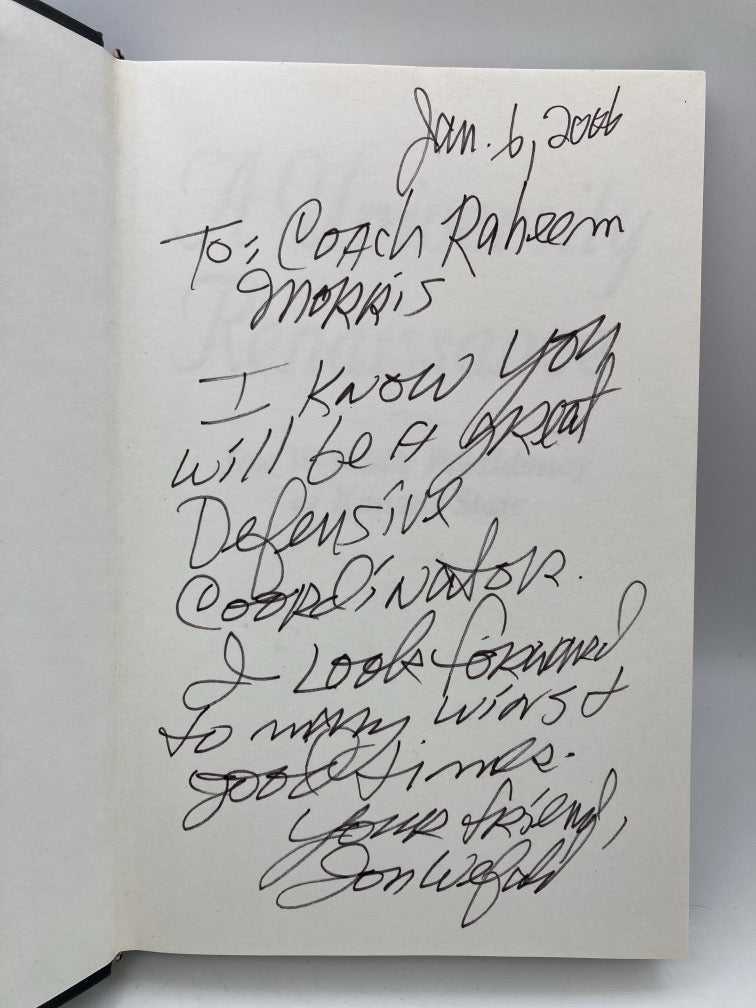 Jan. 6, 2006
To: Coach Raheem
Morris
I know you
will be a great
Defensive
Coordinator.
I look forward
to many wins &
good times.
Your friend,
Jon Wefald